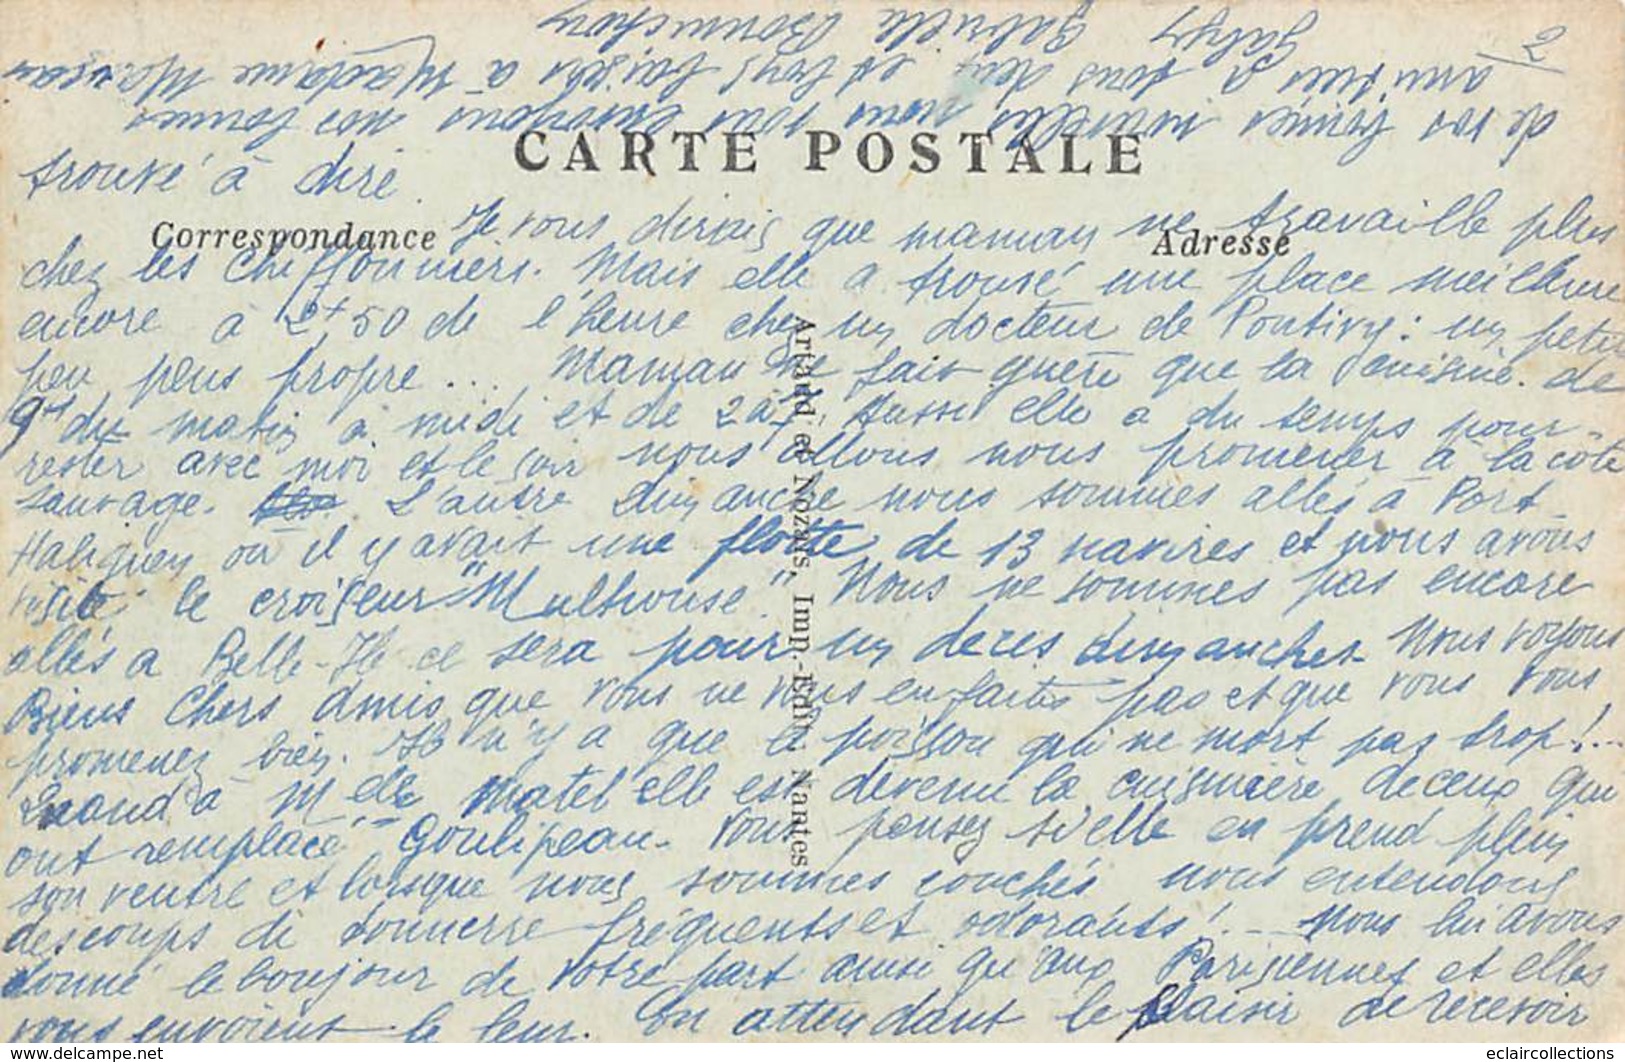 2
CARTE POSTALE
Correspondance
Adresse
trouvé à dire.
Je vous dirais que maman ne travaille plus
chez les Chiffonniers. Mais elle a trouvé une place meilleure
encore à 2f50 de l'heure chez un docteur de Pontivy: un petit
peu plus propre... Maman ne fait guère que la cuisine. de
9h du matin à midi et de 2 à 7. Aussi elle a du temps pour
rester avec moi et le soir nous allons nous promener à la côte
sauvage. L'autre dimanche nous sommes allés à Port-
Haliguen où il y avait une flotte de 13 navires et nous avons
visité le croiseur "Mulhouse". Nous ne sommes pas encore
allés à Belle-Ile ce sera pour un de ces dimanches. Nous voyons
Biens Chers Amis que vous ne vous en faites pas et que vous vous
promenez bien. Il n'y a que le poisson qui ne mort pas trop!...
Quand à Melle Matel elle est devenu la cuisinière de ceux qui
ont remplacé Goulipeau. Vous pensez si elle en prend plein
son ventre et lorsque nous sommes couchés nous entendons
des coups de tonnerre fréquents et odorants!... Nous lui avons
donné le bonjour de votre part ainsi qu'aux Parisiennes et elles
vous envoient le leur. En attendant le plaisir de recevoir
de vos bonnes nouvelles nous vous envoyons nos bonnes
amitiés à tous deux et gros baisers à Madame
Gaby
Gabrielle
Artaud et Nozais, Imp.-Edit. Nantes
eclaircollections